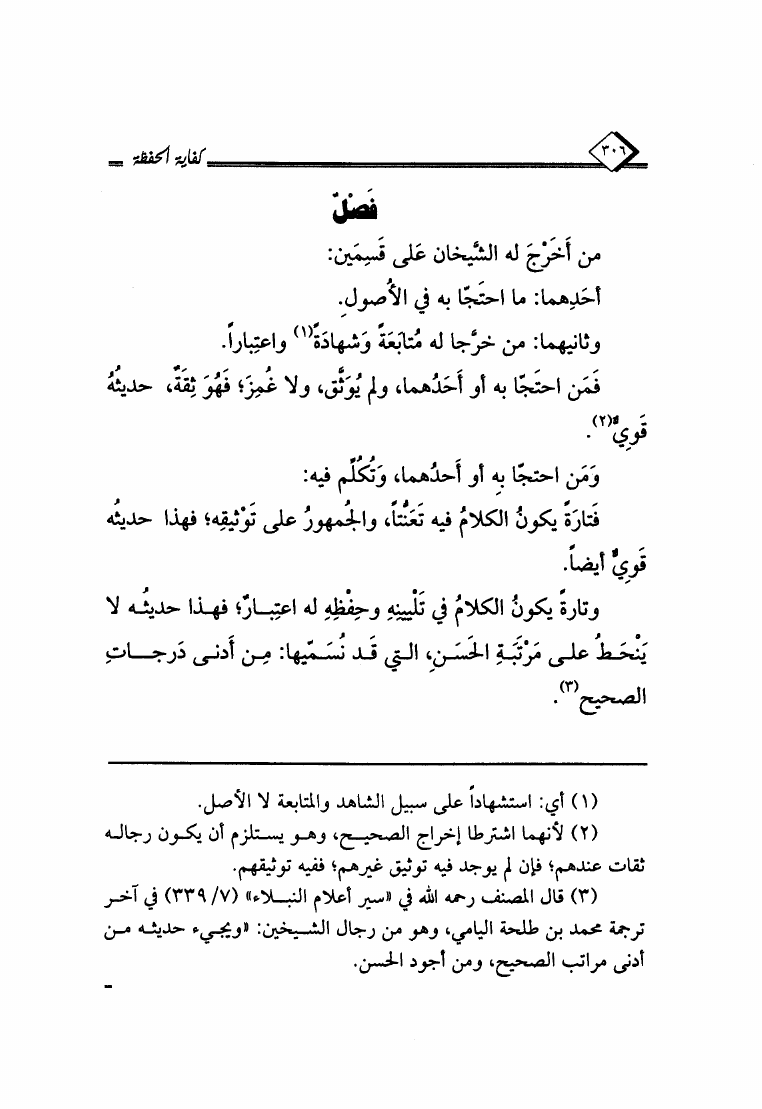 ٣٠٦ كفاية الحفظة
فَصْلٌ
من أَخرَجَ له الشَّيخان عَلى قَسِمَين:
أحَدِهما: ما احتَجّا به في الأُصولِ.
وثانيهما: من خرَّجا له مُتابَعَةً وَشَهادَةً(١) واعتِباراً.
فَمَن احتَجّا به أو أَحَدُهما، ولم يُوَثَّق، ولا غُمِزَ؛ فَهُوَ ثِقَةٌ، حديثُهُ
قَوِيٌّ(٢).
وَمَن احتجّا بِه أو أَحدُهما، وَتُكُلِّم فيه:
فَتارَةً يكونُ الكلامُ فيه تَعَنُّتاً، والجُمهورُ على تَوْثيقِه؛ فهذا حديثُه
قَوِيٌّ أيضاً.
وتارةً يكونُ الكلامُ في تَلْيينِهِ وحِفْظِهِ له اعتِبـارٌ؛ فهـذا حديثُـه لا
يَنْحَـطُ علـى مَرْتَبَـةِ الحَسَـنِ، الـتي قَـد نُسَـمّيها: مِـن أَدنـى دَرجـــاتِ
الصحيح(٣).
(١) أي: استشهاداً على سبيل الشاهد والمتابعة لا الأصل.
(٢) لأنهما اشترطا إخراج الصحيـح، وهـو يسـتلزم أن يكـون رجالـه
ثقات عندهم؛ فإن لم يوجد فيه توثيق غيرهم؛ ففيه توثيقهم.
(٣) قال المصنف رحمه الله في «سير أعلام النبـلاء» (٧/ ٣٣٩) في آخـر
ترجمة محمد بن طلحة اليامي، وهو من رجال الشـيخين: «ويجيء حديثـه مـن
أدنى مراتب الصحيح، ومن أجود الحسن.